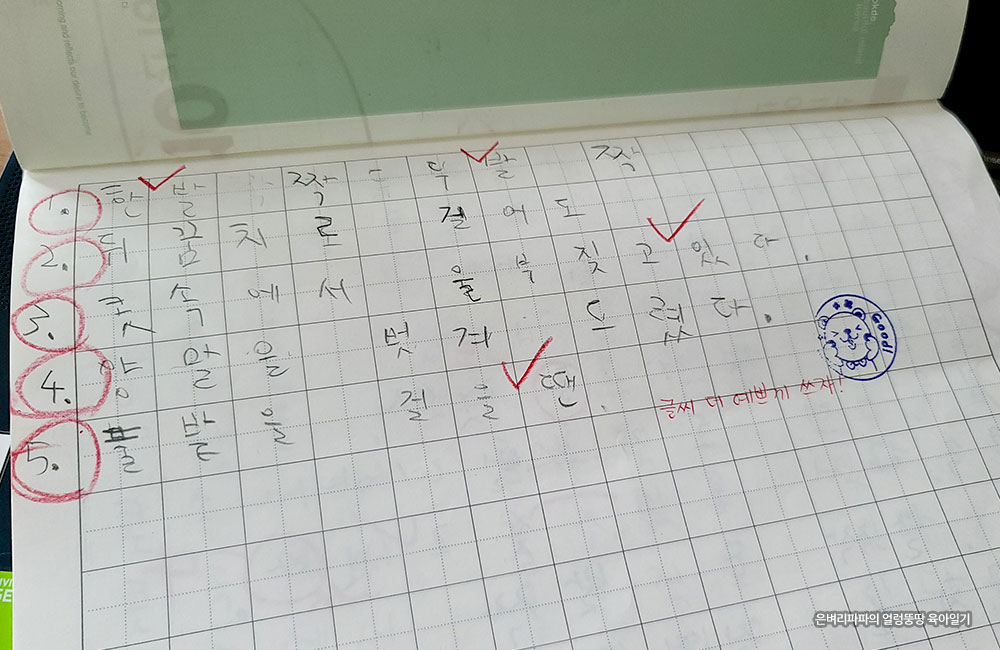 1. 한 발짝 두발 짝
2. 뒤꿈치로 걸어도
3. 콧속에서 울부짖고있다.
4. 양알을 벗겨 도렸다.
5. 풀밭을 걸을땐.
GOOD!
글씨 더 예쁘게 쓰자!
은벼리파파의 얼렁뚱땅 육아일기